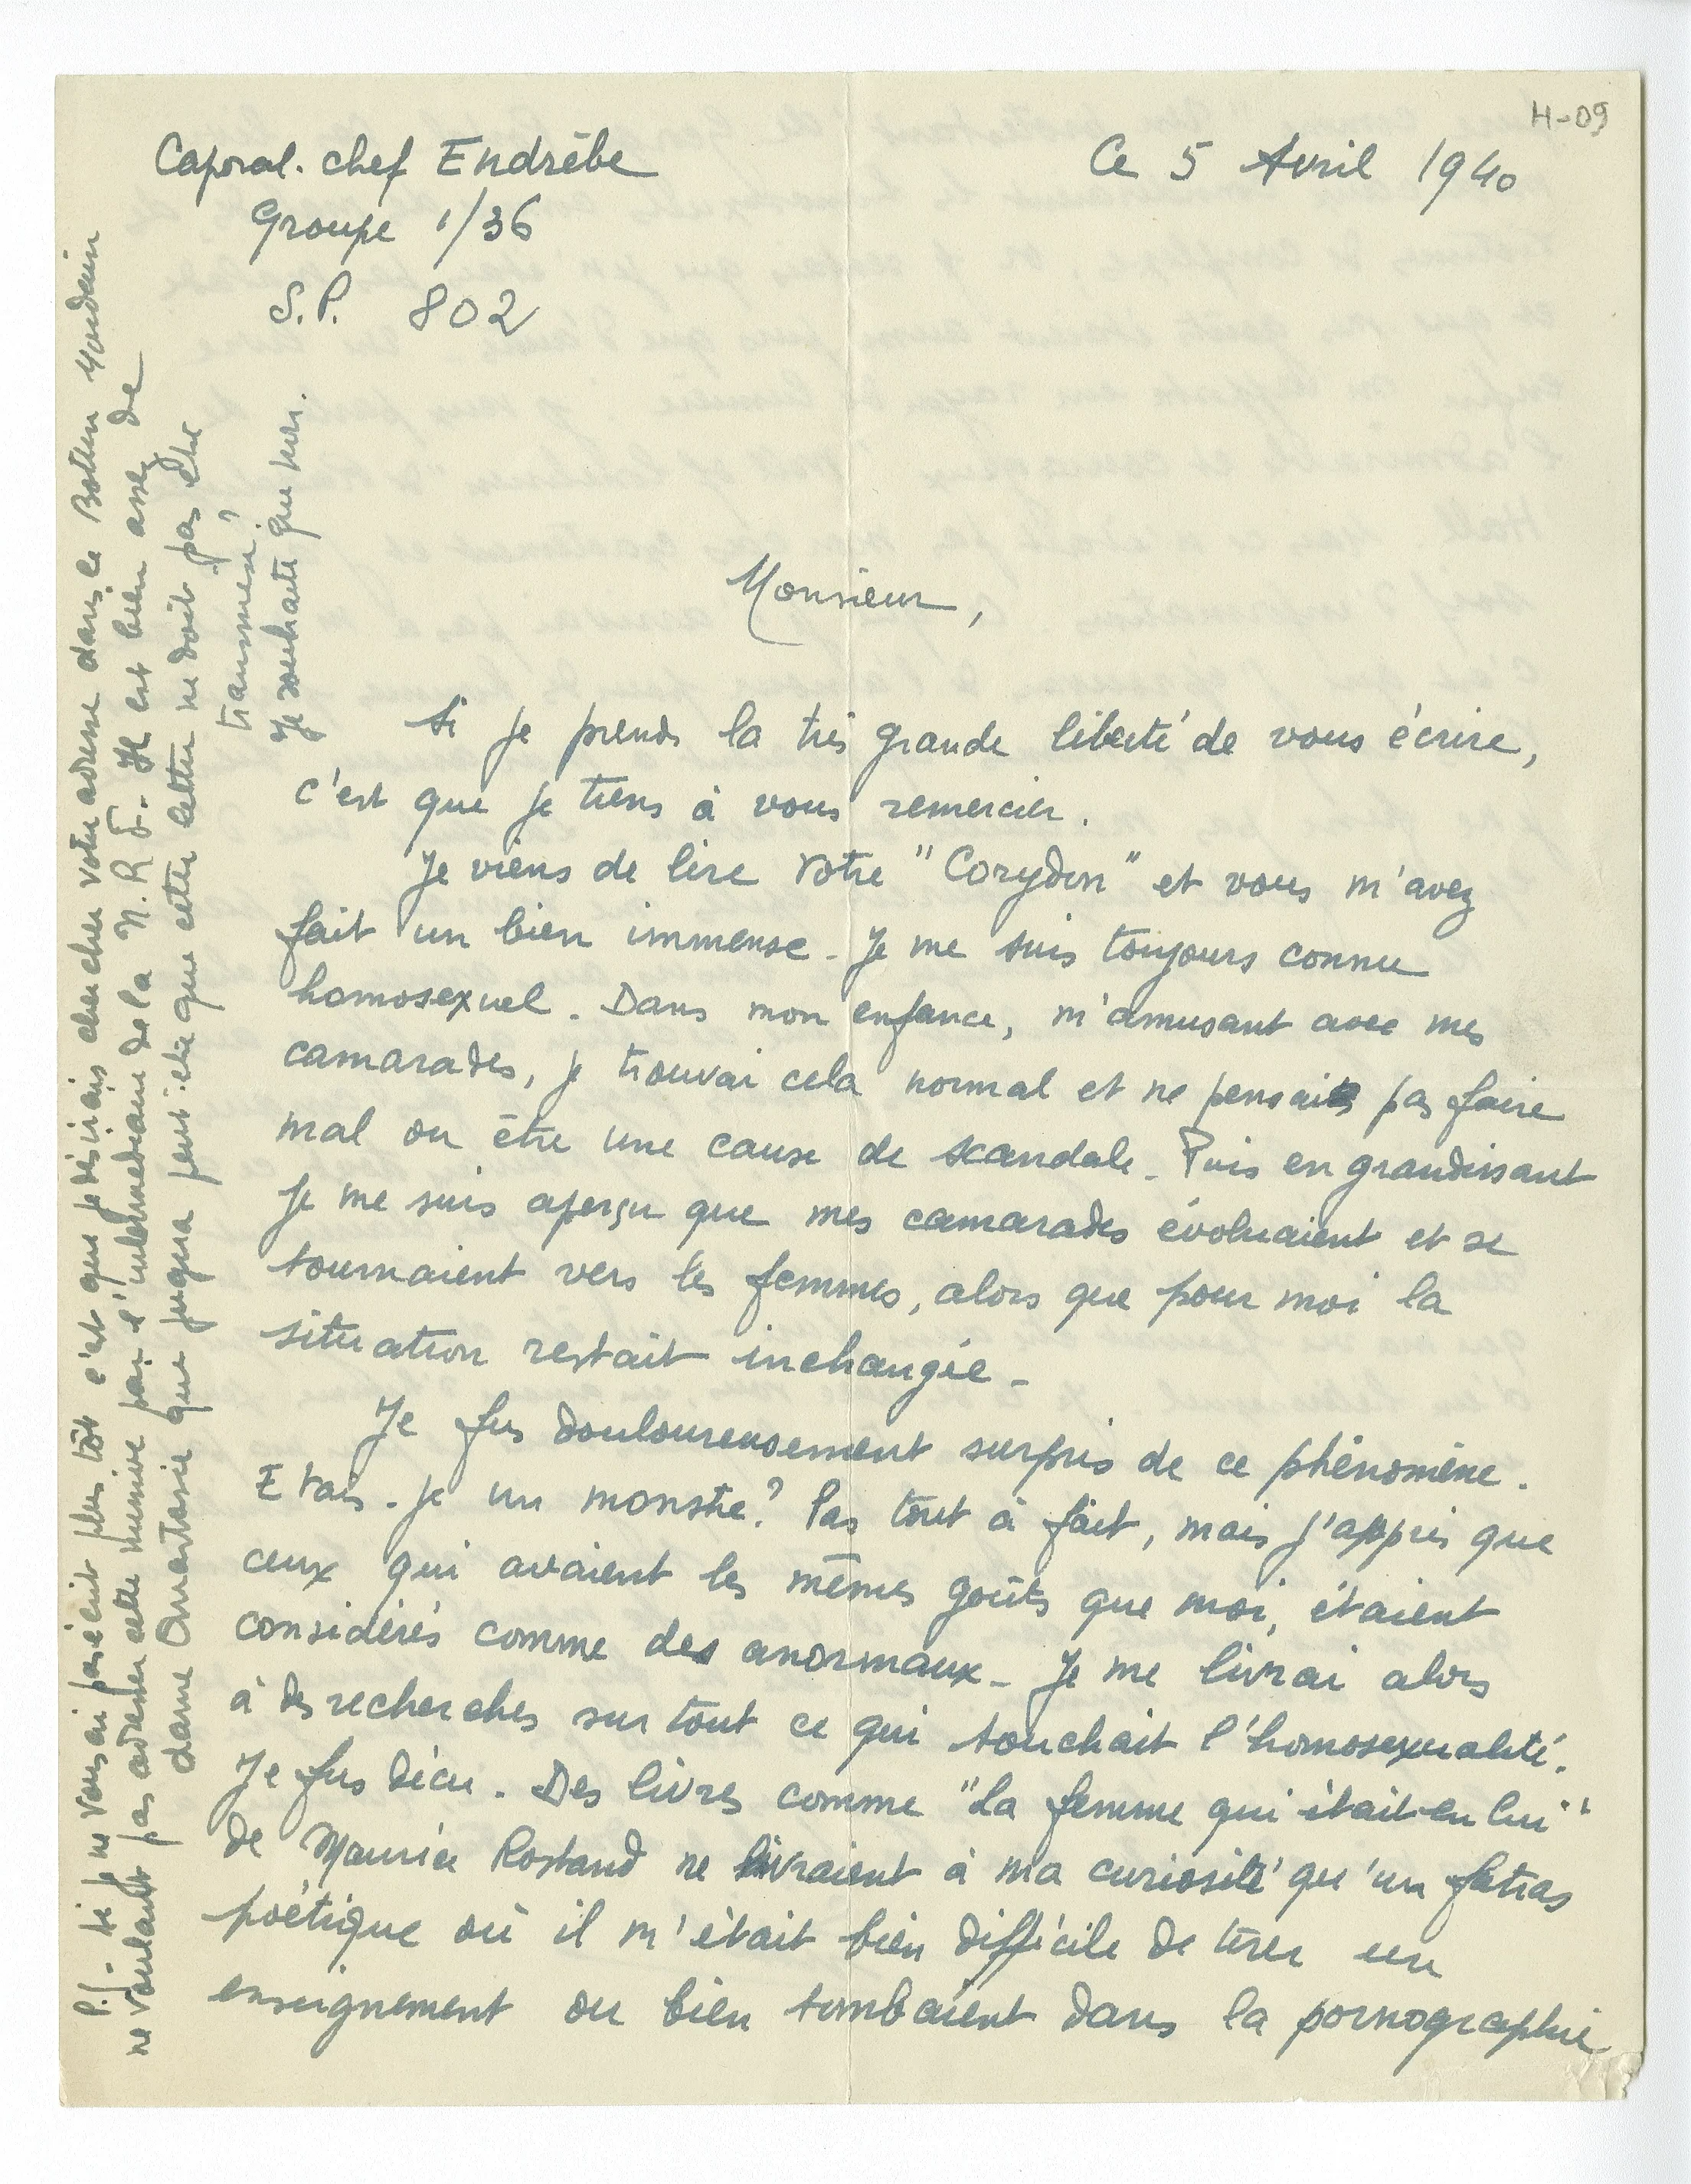 H-09
Caporal-chef Endrèbe
Ce 5 Avril 1940
Groupe 1/36
S.P. 802
Monsieur,
Si je prends la très grande liberté de vous écrire,
c'est que je tiens à vous remercier.
Je viens de lire votre "Corydon" et vous m'avez
fait un bien immense. Je me suis toujours connu
homosexuel. Dans mon enfance, m'amusant avec mes
camarades, je trouvai cela normal et ne pensais pas faire
mal ou être une cause de scandale. Puis en grandissant
je me suis aperçu que mes camarades évoluaient et se
tournaient vers les femmes, alors que pour moi la
situation restait inchangée.
Je fus douloureusement surpris de ce phénomène.
Etais-je un monstre? Pas tout à fait, mais j'appris que
ceux qui avaient les mêmes goûts que moi, étaient
considérés comme des anormaux. Je me livrai alors
à des recherches sur tout ce qui touchait l'homosexualité.
Je fus déçu. Des livres comme "La femme qui était en lui"
de Maurice Rostand ne livraient à ma curiosité qu'un fatras
poétique où il m'était bien difficile de tirer un
enseignement ou bien tombaient dans la pornographie
P.S.- Si je ne vous ai pas écrit plus tôt c'est que je désirais chercher votre adresse dans le Bottin Mondain
ne voulant pas adresser cette missive par l'intermédiaire de la N.R.F. - Il est bien assez de
dame Anastasie que jugera peut-être que cette lettre ne doit pas être
transmise?
Je souhaite que non.